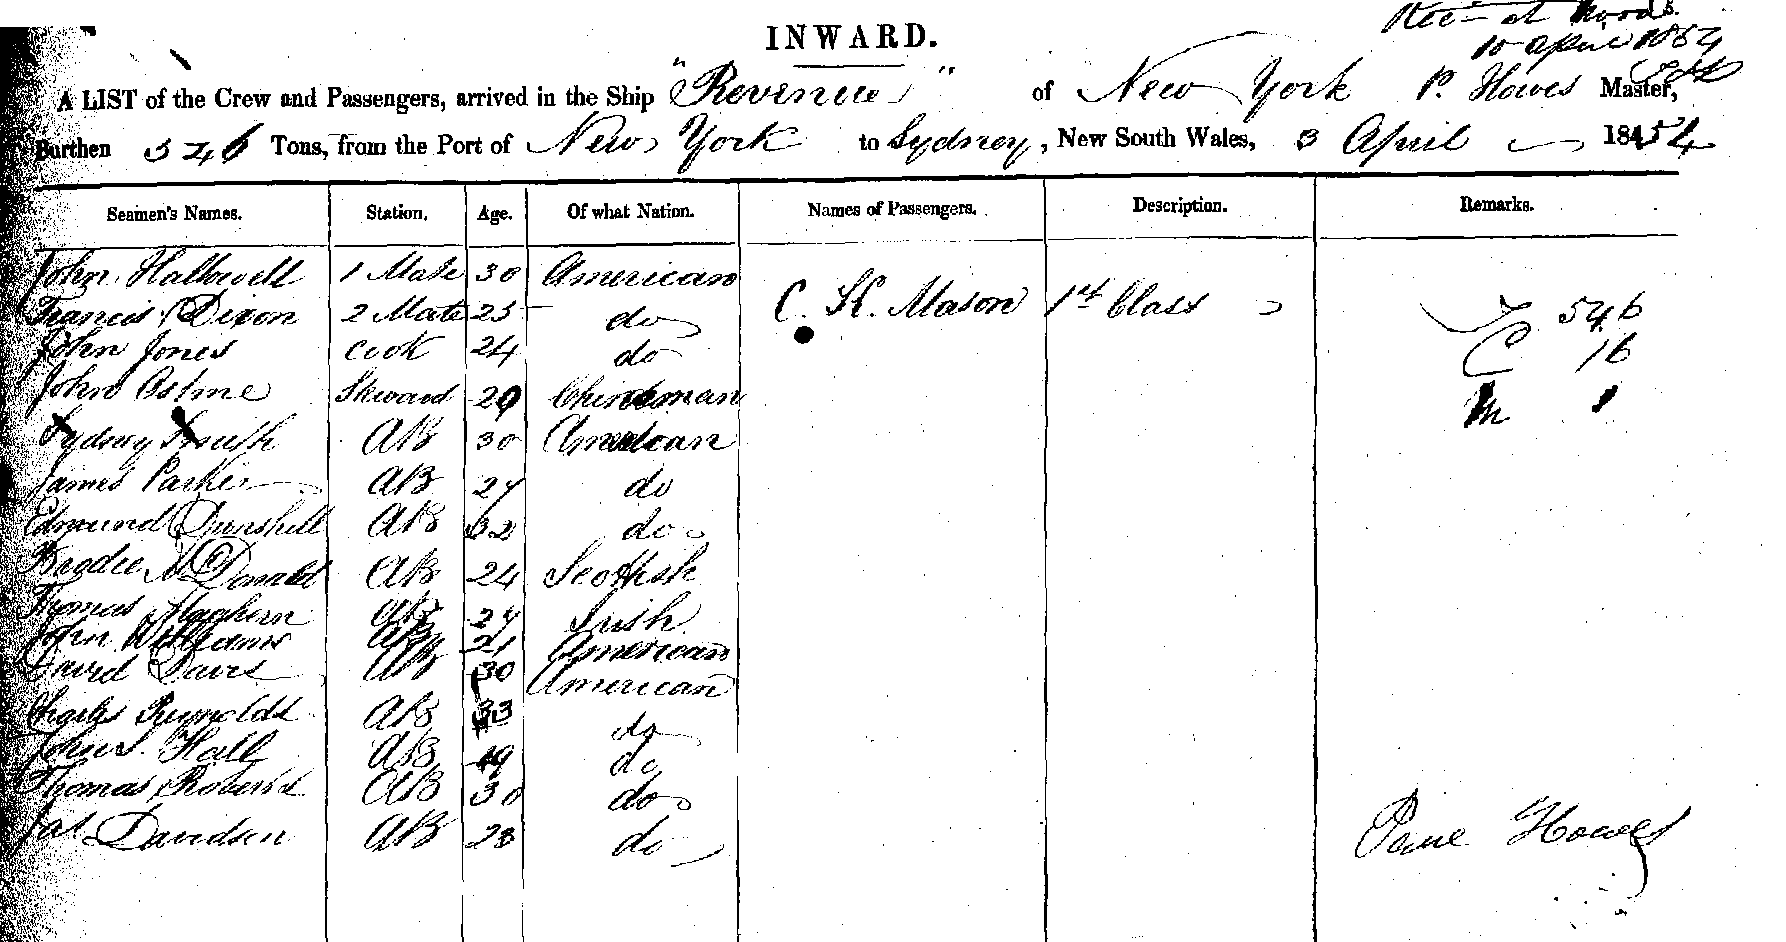 Rec - at Woods.
10 April 1854
INWARD.
A LIST of the Crew and Passengers, arrived in the Ship "Revenue" of New York P. Howes Master,
Burthen 546 Tons, from the Port of New York to Sydney, New South Wales, 3 April 1854
Seamen's Names. Station. Age. Of what Nation. Names of Passengers. Description. Remarks.
John Hallowell 1 Mate 30 American
Francis Dixon 2 Mate 25 do C. H. Mason 1st Class T 546
John Jones Cook 24 do C 16
John Astme Steward 29 Chinaman M 1
Sydney Smith AB 30 American
James Parker AB 24 do
Edmund AB 32 do
Brodie McDonald AB 24 Scottish
Thomas Maghern AB 24 Irish
John Williams AB 21 American
David Davis AB 30 American
Charles Reynolds AB 33 do
John Hall AB 49 do
Thomas Roberts AB 30 do
Jas Davidson AB 23 do
Howes